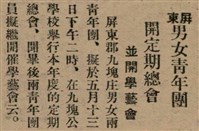 屏東 男女青年團
開定期總會
並開學藝會
屏東郡九塊庄男女兩
青年團、擬於五月十三
日下午二時、在九塊公
學校舉行本年度的定期
總會、開畢後兩青年團
員擬繼開催學藝會云。